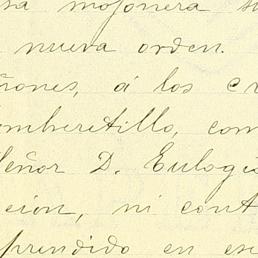 sa mojonera su
nueva orden.
ñones, á los cr
omberetillo, com
Señor D. Eulogi
cion, ni cont
prendido en es